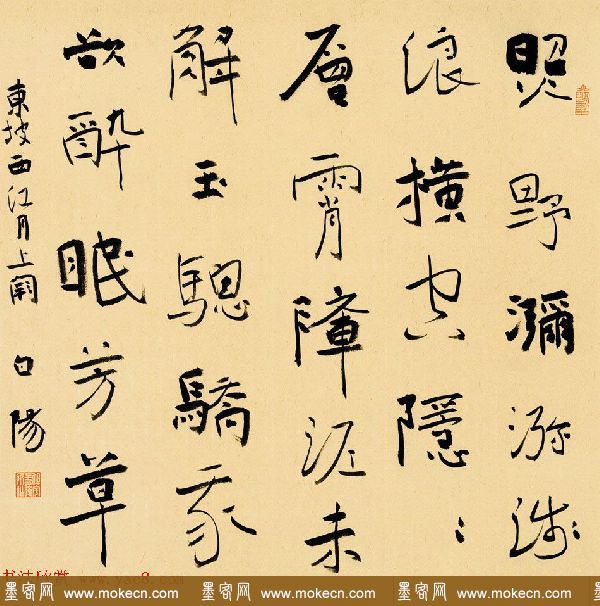 照野瀰㳽浅
浪橫空隱〻
層霄障泥未
解玉驄驕我
欲醉眠芳草
東坡西江月上闋 白陽
书法欣赏 www.yac8.com
墨客网 www.mokecn.com 墨客网 www.mokecn.com 墨客网 www.mokecn.com